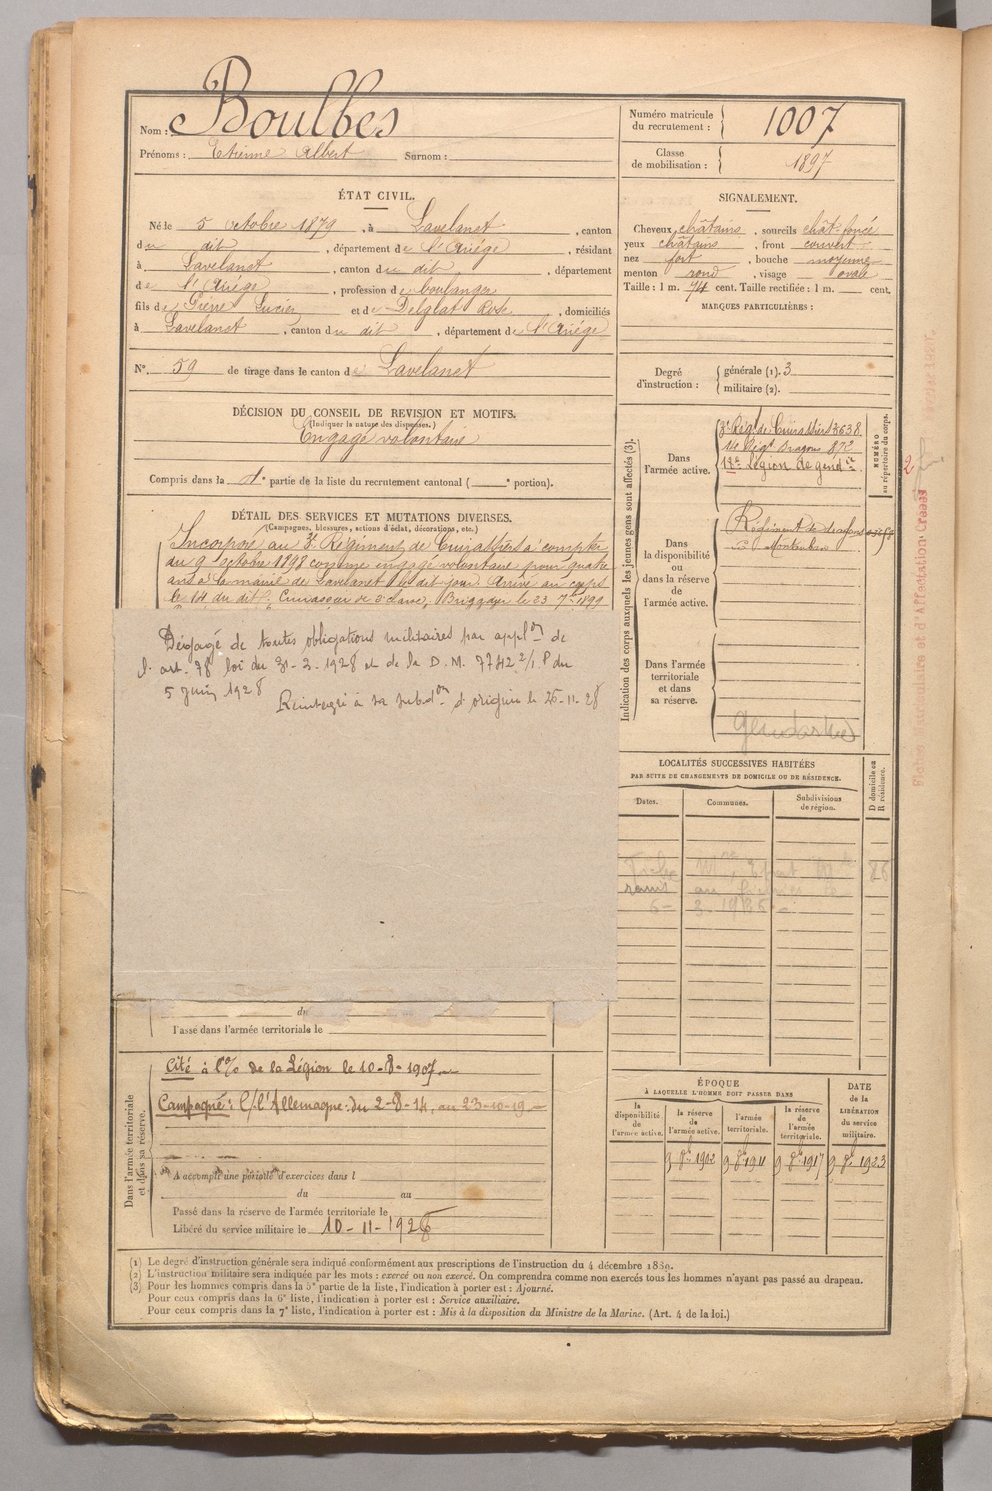 Nom : Boulbes
Prénoms : Etienne Albert Surnom :
Numéro matricule du recrutement : 1007
Classe de mobilisation : 1897
ÉTAT CIVIL.
Né le 5 octobre 1879, à Lavelanet, canton
du dit, département de l'Ariége, résidant
à Lavelanet, canton du dit, département
de l'Ariége, profession de boulanger
fils de Pierre Lucien et de Delglat Rose, domiciliés
à Lavelanet, canton du dit, département de l'Ariége
N° 59 de tirage dans le canton de Lavelanet
SIGNALEMENT.
Cheveux châtains, sourcils chât-foncé
yeux châtains, front couvert
nez fort, bouche moyenne
menton rond, visage ovale
Taille : 1 m. 74 cent. Taille rectifiée : 1 m. cent.
MARQUES PARTICULIÈRES :
Degré d'instruction : générale (1). 3
militaire (2).
DÉCISION DU CONSEIL DE REVISION ET MOTIFS.
(Indiquer la nature des dispenses.)
Engagé volontaire
Compris dans la 1e partie de la liste du recrutement cantonal ( portion).
DÉTAIL DES SERVICES ET MUTATIONS DIVERSES.
(Campagnes, blessures, actions d'éclat, décorations, etc.)
Incorporé au 3e Régiment de Cuirassiers à compter
du 9 octobre 1898 comme engagé volontaire pour quatre
ans à la mairie de Lavelanet le dit jour. Arrivé au corps
le 14 du dit. Cuirassier de 2e classe, Brigadier le 23 7bre 1899
Dégagé de toutes obligations militaires par appl on de
l'art. 78 loi du 31-3-1928 et de la D.M. 7742 2/1.P du
5 Juin 1928
Réintégré à sa subd on d'origine le 26-11-28
Indication des corps auxquels les jeunes gens sont affectés (3).
Dans l'armée active.
3e Régt de Cuirassiers 3638
14e Régt Dragons 872
12e Légion de gend rie
NUMÉRO au répertoire du corps.
Dans la disponibilité ou dans la réserve de l'armée active.
Régiment de dragons
Montauban
Dans l'armée territoriale et dans sa réserve.
Gendarme
Fiches Matriculaire et d'Affectation Créées
LOCALITÉS SUCCESSIVES HABITÉES
PAR SUITE DE CHANGEMENTS DE DOMICILE OU DE RÉSIDENCE.
Dates. Communes. Subdivisions de région. D domicile ou R résidence.
du
Passé dans l'armée territoriale le
Dans l'armée territoriale et dans sa réserve.
Cité à l'% de la Légion le 10-8-1907
Campagne : C/ l'Allemagne : du 2-8-14, au 23-10-19
A accompli une période d'exercices dans l
du au
Passé dans la réserve de l'armée territoriale le
Libéré du service militaire le 10-11-1928
ÉPOQUE
À LAQUELLE L'HOMME DOIT PASSER DANS
la disponibilité de l'armée active. la réserve de l'armée active. l'armée territoriale. la réserve de l'armée territoriale.
DATE de la LIBÉRATION du service militaire.
9 8bre 1902 9 8bre 1911 9 8bre 1917 9 8bre 1923
(1) Le degré d'instruction générale sera indiqué conformément aux prescriptions de l'instruction du 4 décembre 1889.
(2) L'instruction militaire sera indiquée par les mots : exercé ou non exercé. On comprendra comme non exercés tous les hommes n'ayant pas passé au drapeau.
(3) Pour les hommes compris dans la 5e partie de la liste, l'indication à porter est : Ajourné.
Pour ceux compris dans la 6e liste, l'indication à porter est : Service auxiliaire.
Pour ceux compris dans la 7e liste, l'indication à porter est : Mis à la disposition du Ministre de la Marine. (Art. 4 de la loi.)